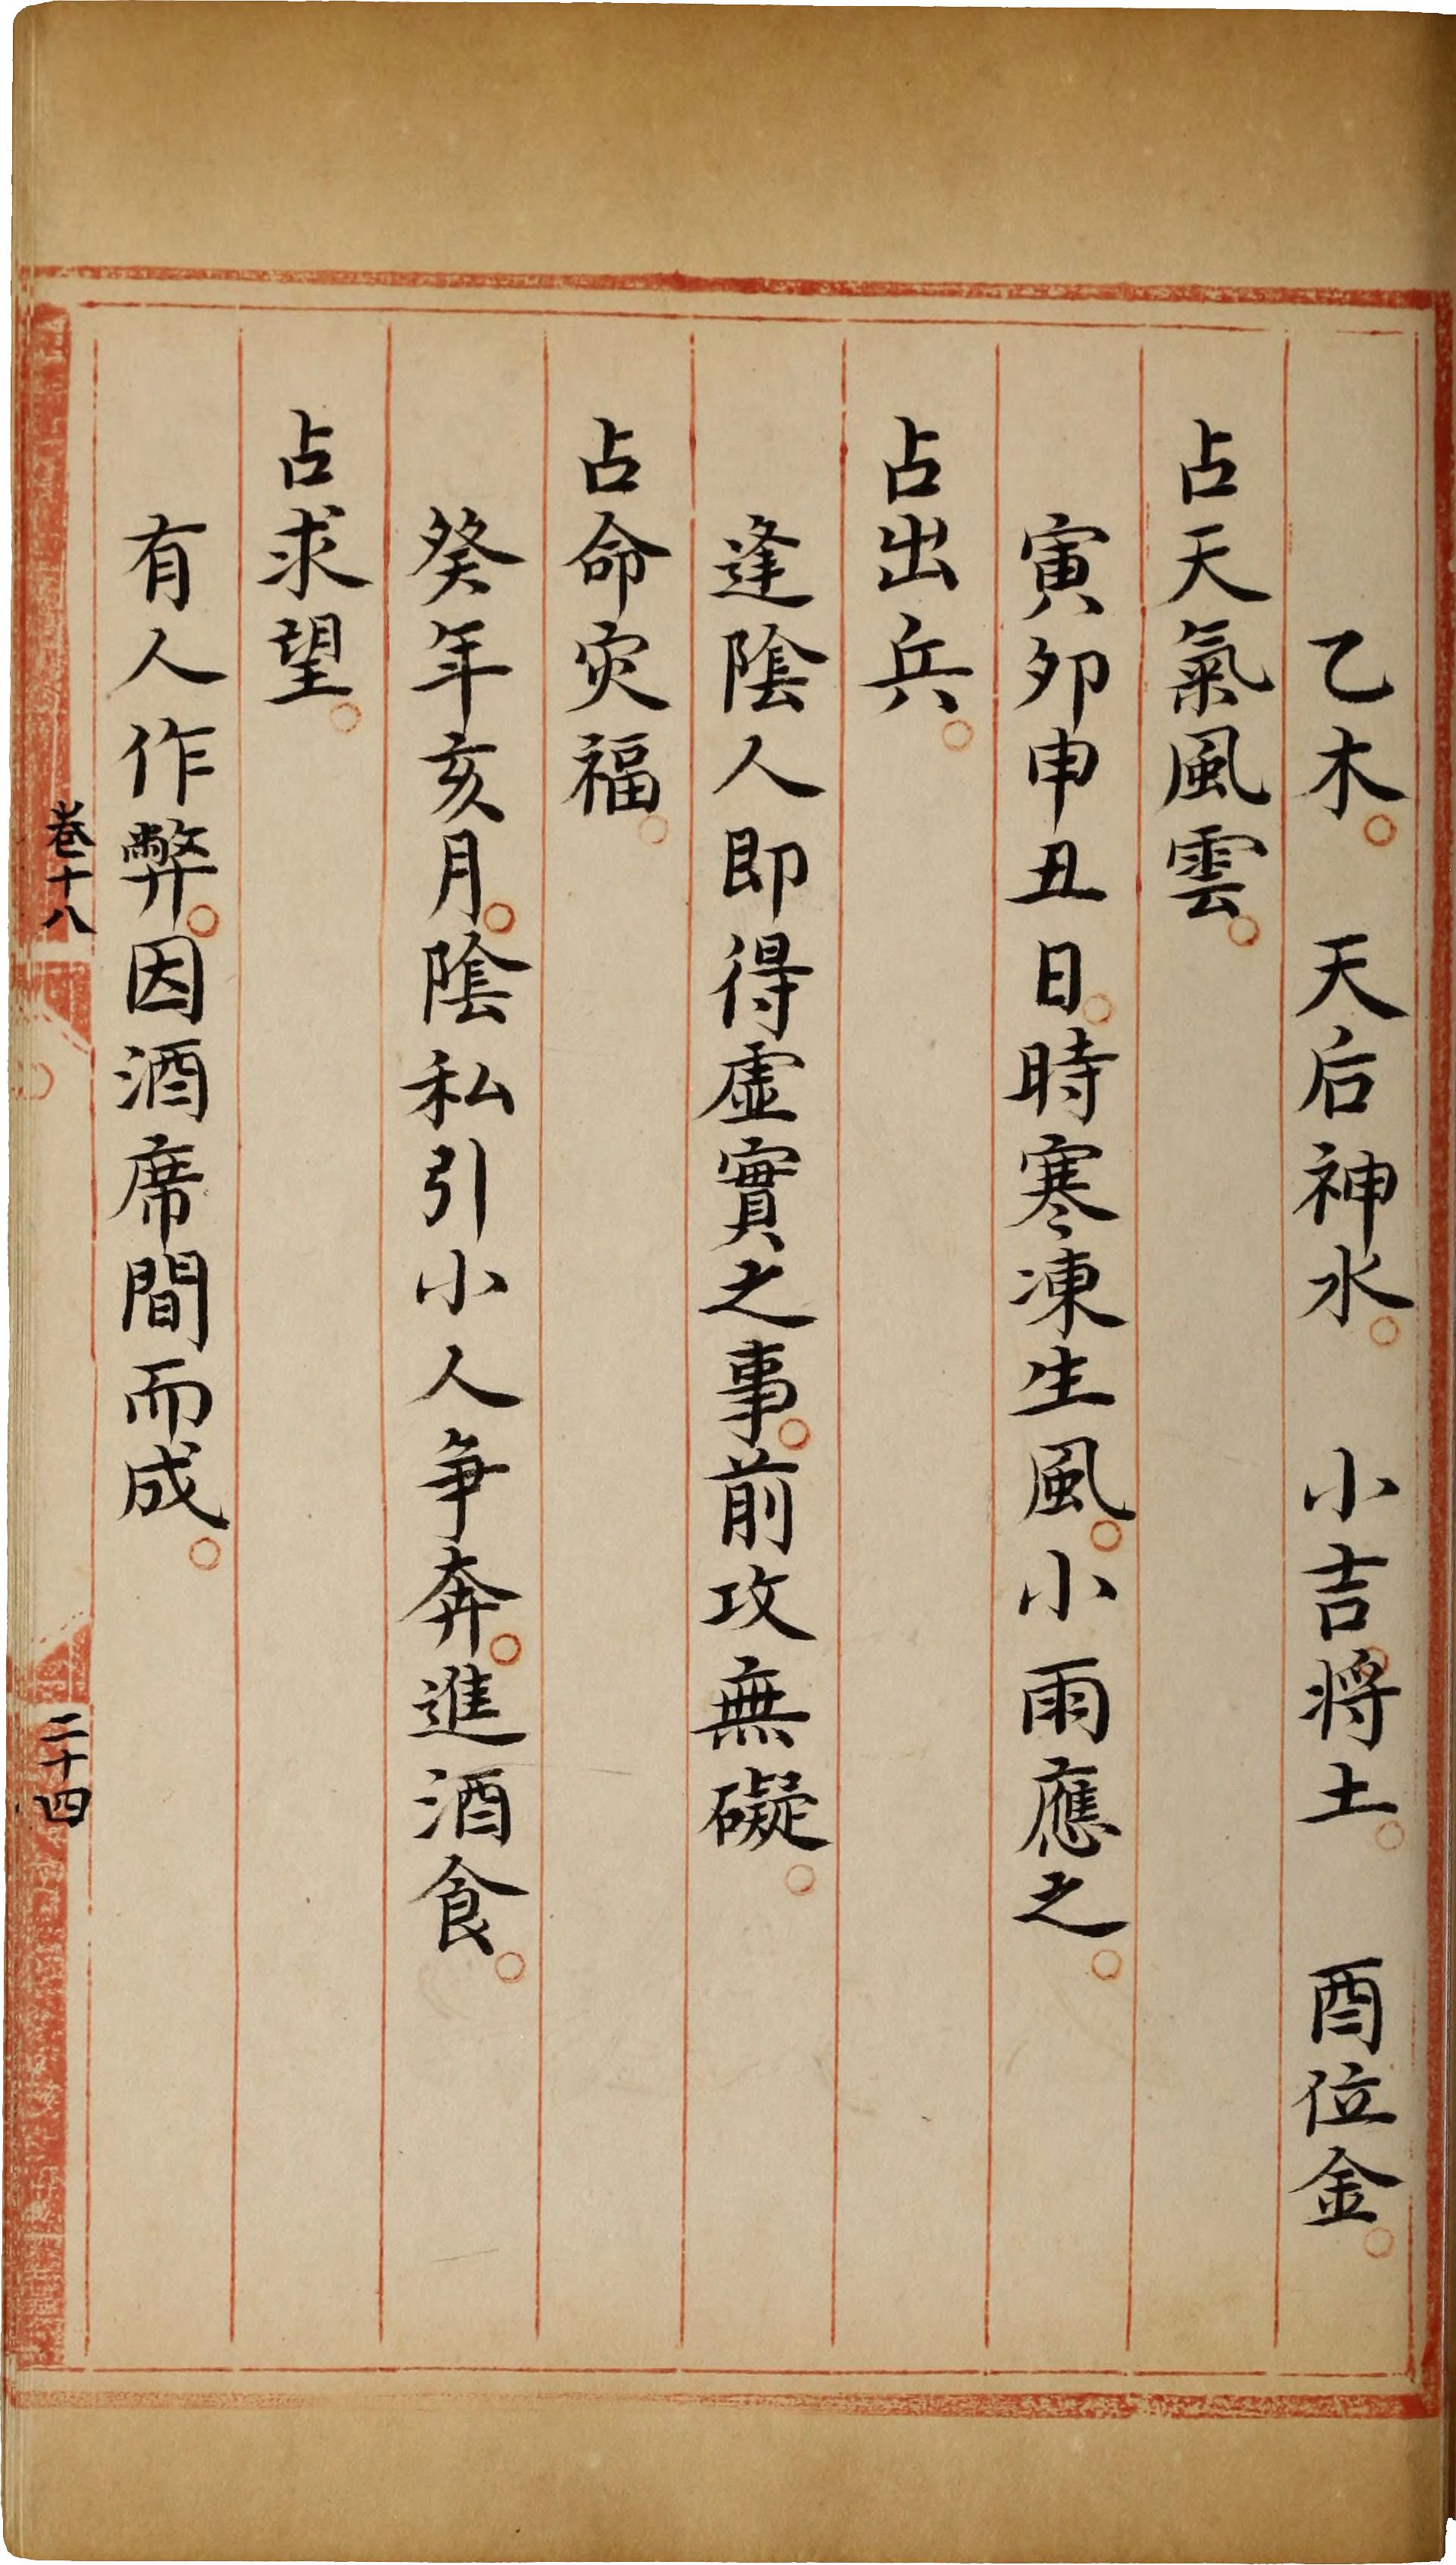 乙木。　天后神水。　小吉將土。　酉位金。
占天氣風雲。
寅卯申丑日。時寒凍生風。小雨應之。
占出兵。
逢陰人即得虛實之事。前攻無礙。
占命灾福。
癸年亥月。陰私引小人爭奔。進酒食。
占求望。
有人作弊。因酒席間而成。
卷十八
二十四